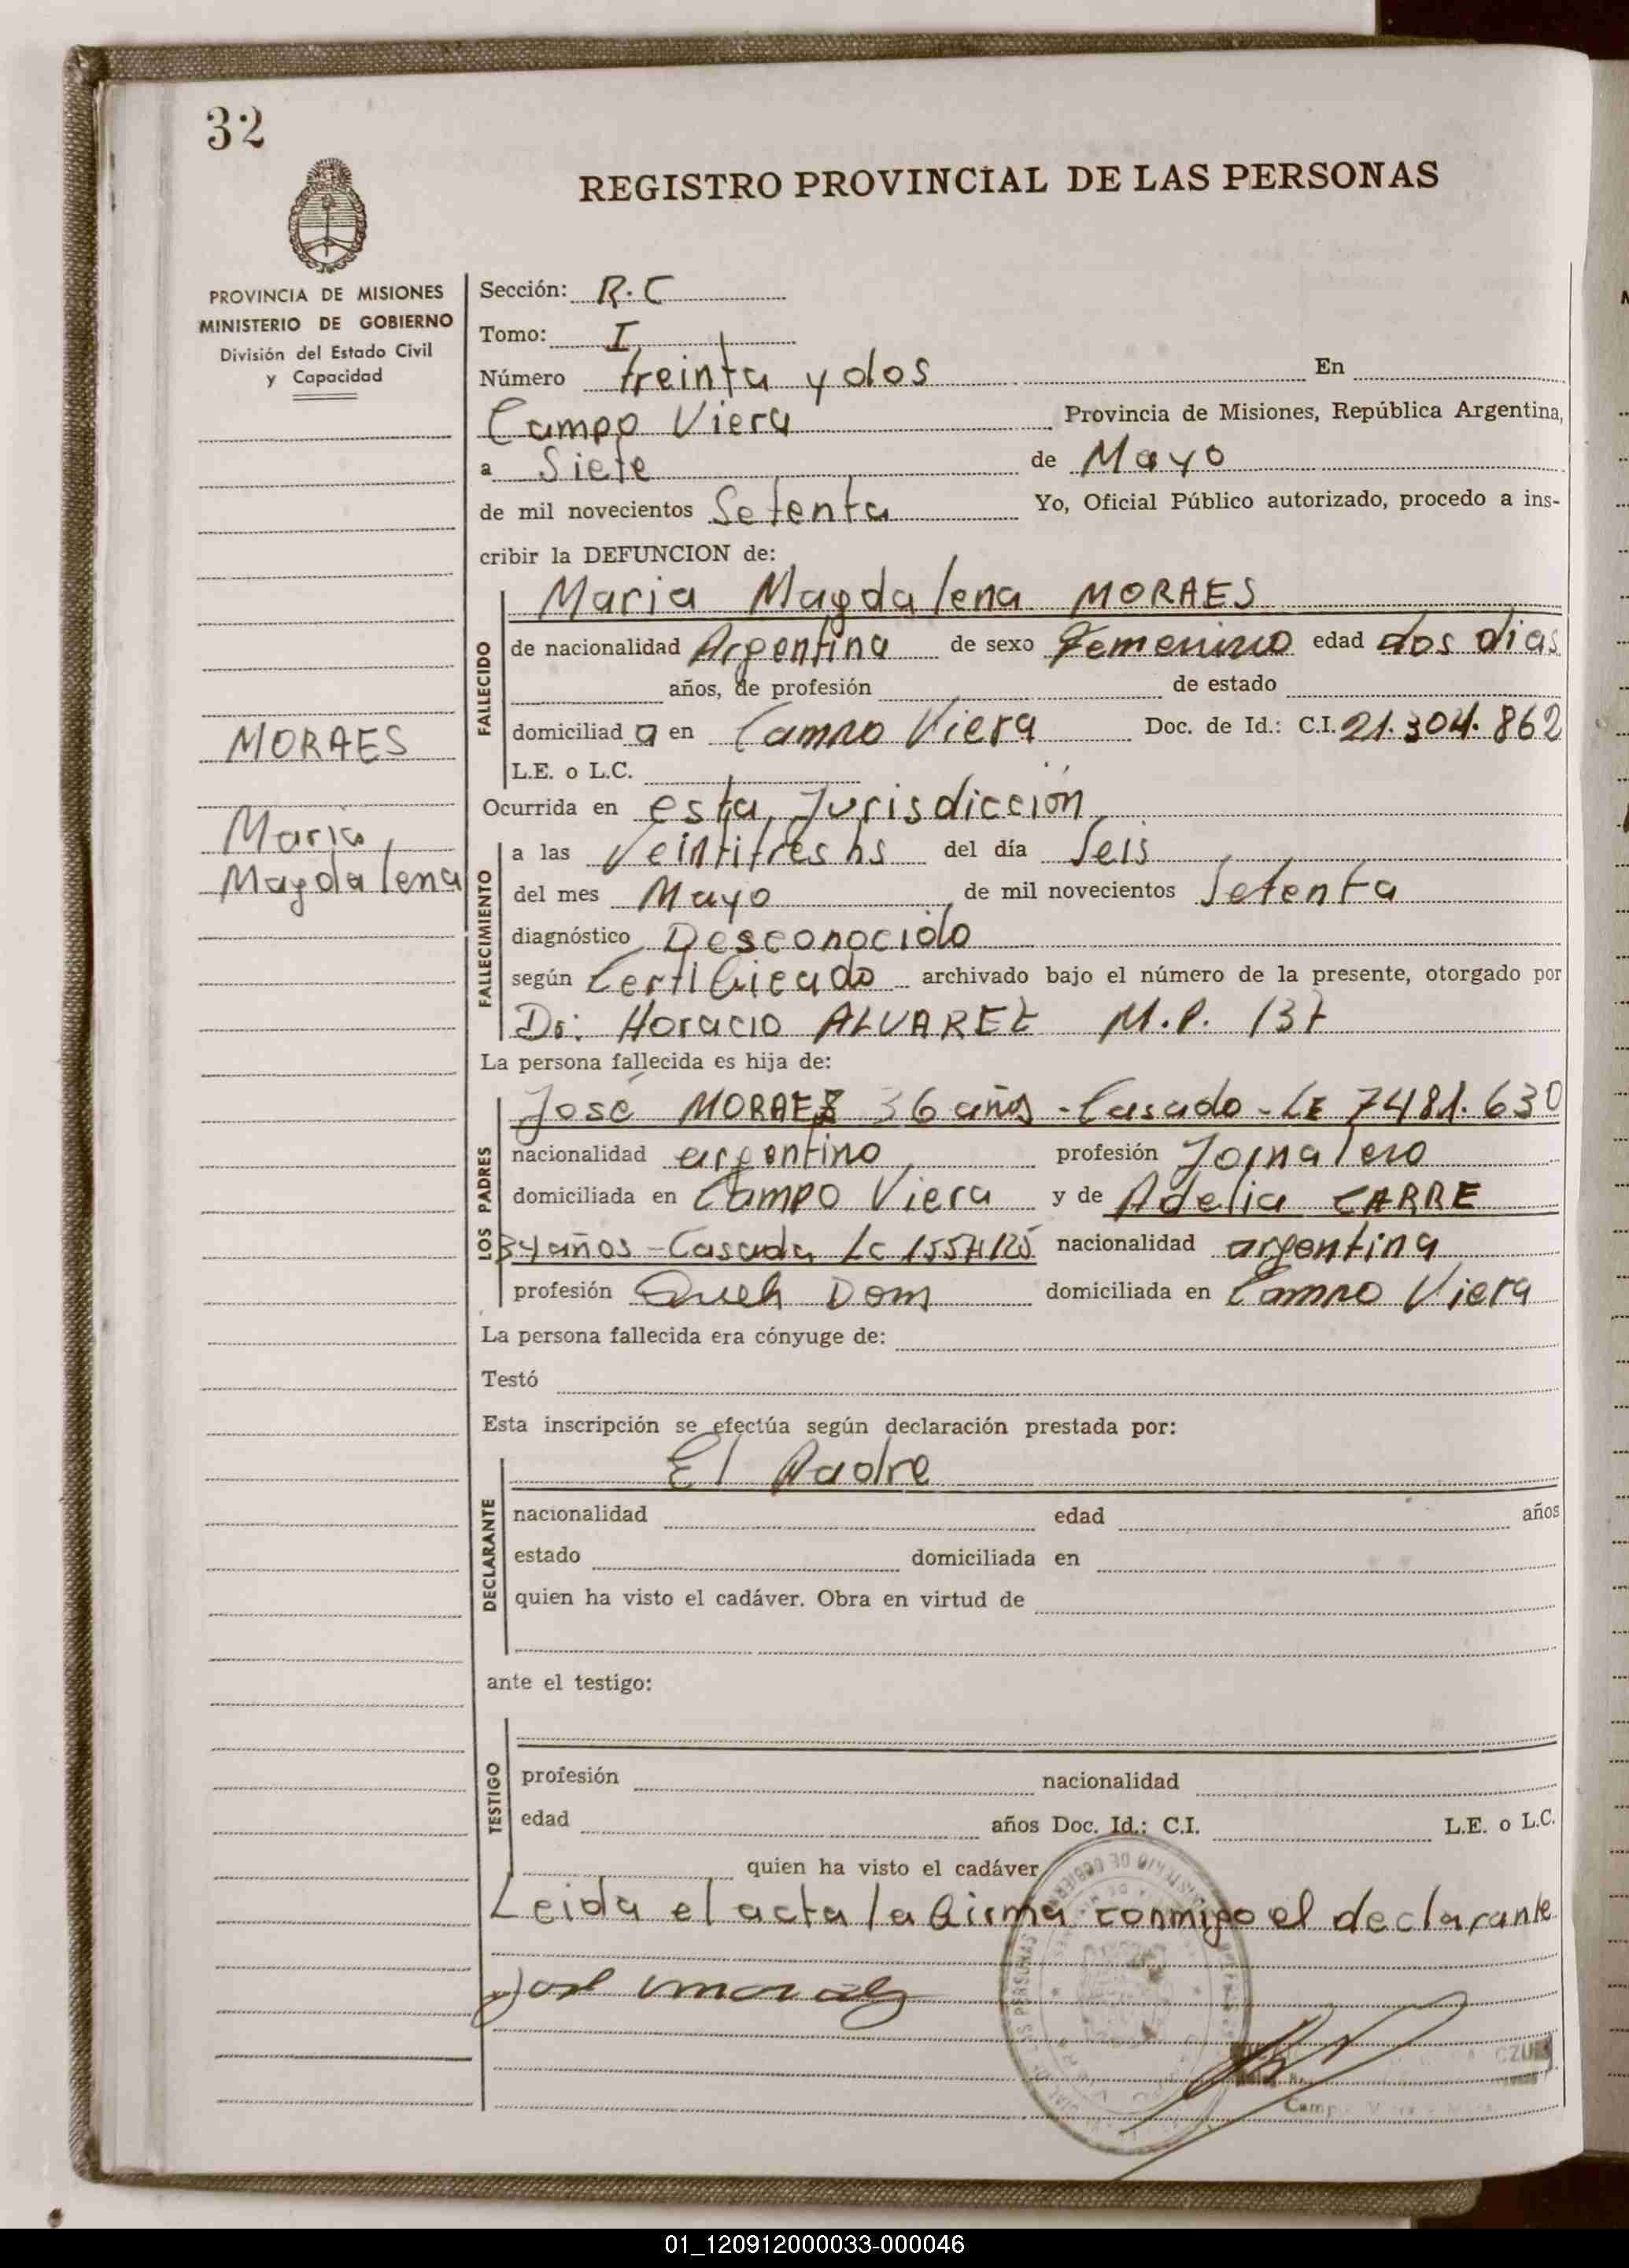 32
REGISTRO PROVINCIAL DE LAS PERSONAS
PROVINCIA DE MISIONES
MINISTERIO DE GOBIERNO
División del Estado Civil
y Capacidad
MORAES
Maria
Magdalena
Sección: R.C
Tomo: I
Número treinta y dos En
Campo Viera Provincia de Misiones, República Argentina,
a Siete de Mayo
de mil novecientos Setenta Yo, Oficial Público autorizado, procedo a ins-
cribir la DEFUNCION de:
Maria Magdalena MORAES
FALLECIDO
de nacionalidad Argentina de sexo Femenino edad dos dias
años, de profesión de estado
domiciliad a en Campo Viera Doc. de Id.: C.I. 21.304.862
L.E. o L.C.
Ocurrida en esta Jurisdicción
FALLECIMIENTO
a las Veintitres hs del día Seis
del mes Mayo de mil novecientos Setenta
diagnóstico Desconocido
según Certificado archivado bajo el número de la presente, otorgado por
Dr. Horacio ALVAREZ M.P. 137
La persona fallecida es hija de:
LOS PADRES
José MORAES 36 años - Casado - LE 7481.630
nacionalidad argentino profesión Jornalero
domiciliada en Campo Viera y de Adelia CARRE
34 años - Casada LC nacionalidad argentina
profesión Queh Dom domiciliada en Campo Viera
La persona fallecida era cónyuge de:
Testó
Esta inscripción se efectúa según declaración prestada por:
El Padre
DECLARANTE
nacionalidad edad años
estado domiciliada en
quien ha visto el cadáver. Obra en virtud de
ante el testigo:
TESTIGO
profesión nacionalidad
edad años Doc. Id.: C.I. L.E. o L.C.
quien ha visto el cadáver
Leida el acta la firma conmigo el declarante
01_120912000033-000046